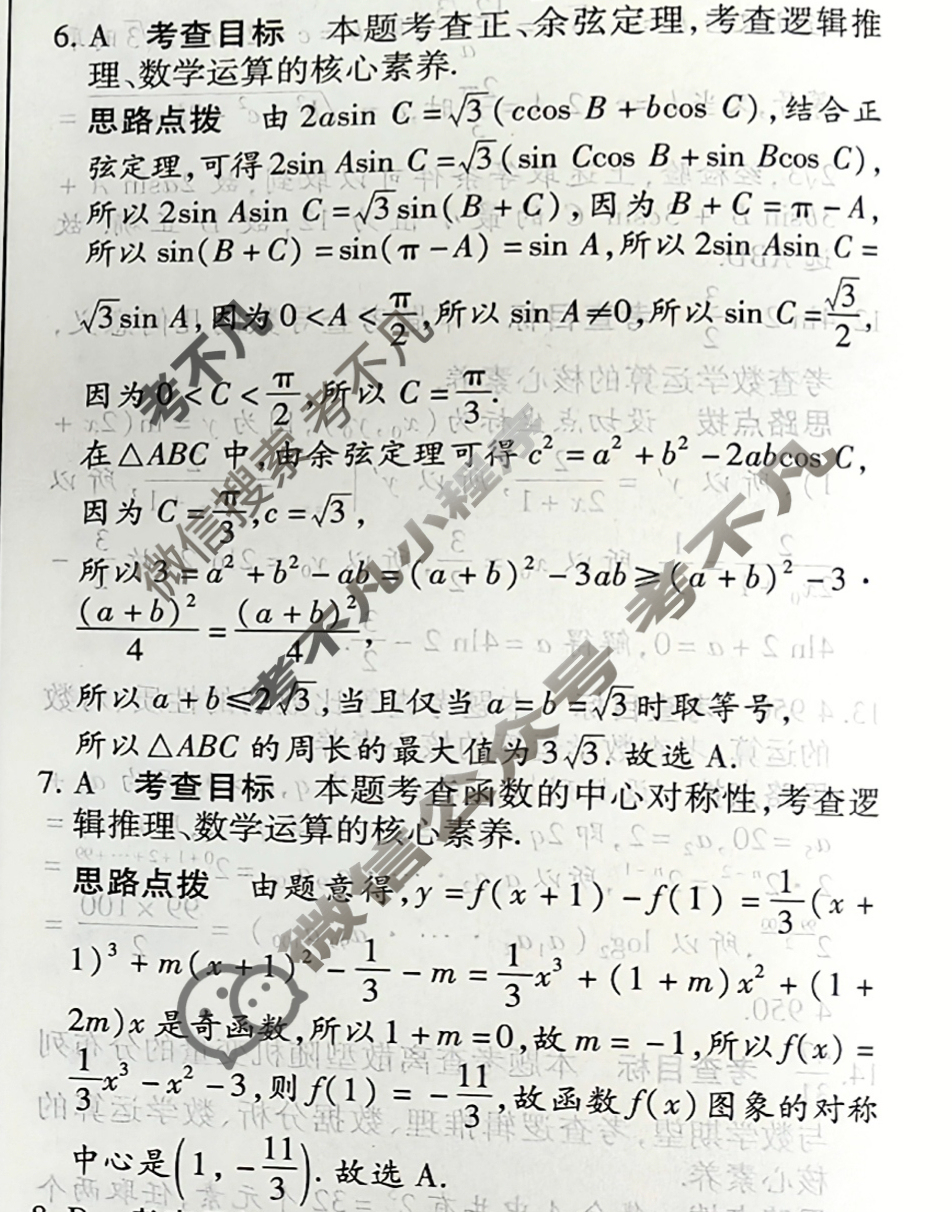 6. A 考查目标 本题考查正、余弦定理,考查逻辑推
理、数学运算的核心素养.
思路点拨 由 2asin C = √3(ccos B + bcos C),结合正
弦定理,可得2sin Asin C = √3(sin Ccos B + sin Bcos C),
所以 2sin Asin C = √3sin(B + C),因为 B + C = π - A,
所以 sin(B + C) = sin(π - A) = sin A,所以 2sin Asin C =
√3sin A,因为 0 < A < π/2,所以 sin A ≠ 0,所以 sin C = √3/2,
因为 0 < C < π/2,所以 C = π/3.
在 △ABC 中,由余弦定理可得 c² = a² + b² - 2abcos C,
因为 C = π/3, c = √3,
所以 3 = a² + b² - ab = (a + b)² - 3ab ≥ (a + b)² - 3 ·
(a + b)²/4 = (a + b)²/4,
所以 a + b ≤ 2√3,当且仅当 a = b = √3时取等号,
所以 △ABC 的周长的最大值为 3√3. 故选 A.
7. A 考查目标 本题考查函数的中心对称性,考查逻
辑推理、数学运算的核心素养.
思路点拨 由题意得, y = f(x + 1) - f(1) = 1/3(x +
1)³ + m(x + 1)² - 1/3 - m = 1/3x³ + (1 + m)x² + (1 +
2m)x 是奇函数,所以 1 + m = 0,故 m = -1,所以 f(x) =
1/3x³ - x² - 3,则 f(1) = -11/3,故函数 f(x) 图象的对称
中心是(1, -11/3). 故选 A.
考不凡
微信搜索 考不凡
考不凡小程序
微信公众号 考不凡